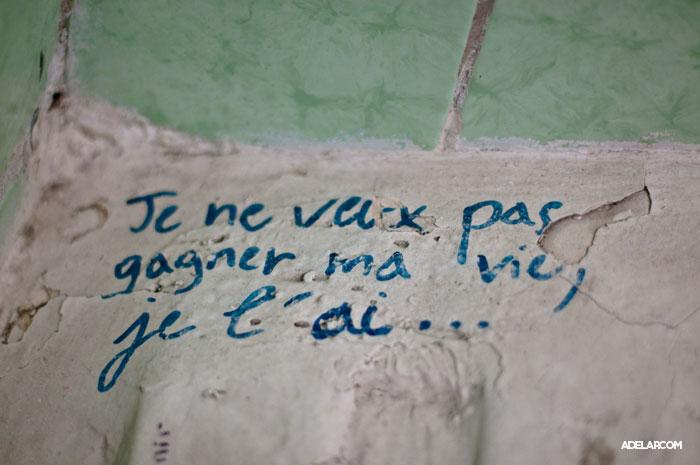 Je ne veux pas
gagner ma vie,
je l'ai...
ADELARCOM